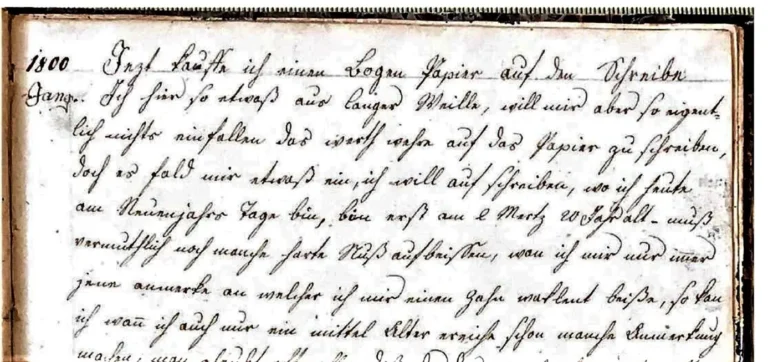 1800 Jezt kauffe ich einen Bogen Papier auf den Schreibe
Jang. Ich hier so etwaß aus langer Weille, will mir aber so eigent=
lich nichts einfallen das werth wehre auf das Papier zu schreiben,
doch es fald mir etwaß ein, ich will auf schreiben, wo ich heute
am Neuenjahrs Tage bin, bin erst am 2 Mertz 20 Jahr alt - muß
vermuthlich noch manche harte Nuß aufbeissen, wan ich mir nur imer
jene anmerke an welcher ich mir einen Zahn wakkent beiße, so kan
ich wan̄ ich auch nur ein mittel Alter erreiche schon manche Anmerkung
machen, man